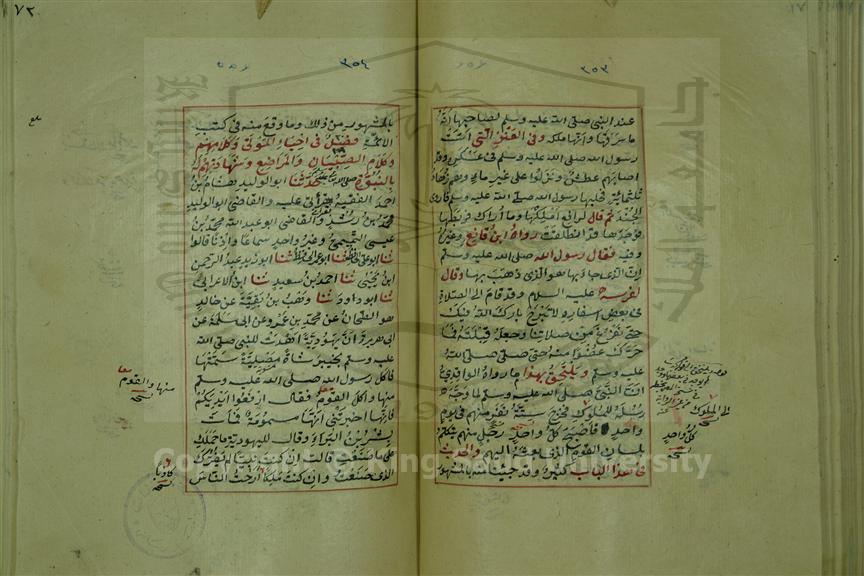 ٣٥٣
عند النبى صلى الله عليه وسلم لصاحبها انه
ما سرقها وانها ملكه وفى العنز التى اتت
رسول الله صلى الله عليه وسلم فى عسكره وقد
اصابهم عطش ونزلوا على غير ماء وهم زهاء
ثلثمائة فحلبها رسول الله صلى الله عليه وسلم فاروى
الجند ثم قال لرافع املكها وما اراك فربطها
فوجدها قد انطلقت رواه ابن قانع وغيره
وفيه فقال رسول الله صلى الله عليه وسلم
ان الذى جاء بها هو الذى ذهب بها وقال
لفرسه عليه السلام وقد قام الى الصلاة
فى بعض اسفاره لا تبرح بارك الله فيك
حتى نفرغ من صلاتنا وجعله قبلته فما
حرك عضوا منه حتى صلى صلى الله
عليه وسلم ويلتحق بهذا ما رواه الواقدى
ان النبى صلى الله عليه وسلم لما وجه
رسله للملوك فخرج ستة نفر منهم فى يوم
واحد فاصبح كل واحد رجل منهم يتكلم
بلسان القوم الذى بعثه اليهم والحديث
فى هذا الباب كثير وقد جئنا منه بالمشهور
الى الملوك
كل واحد
نسخه
٣٥٤
بالمشهور من ذلك وما وقع منه فى كتب
الائمة فصل فى احياء الموتى وكلامهم
وكلام الصبيان والمراضع وشهادتهم
بالنبوة صلى الله عليه حدثنا ابو الوليد هشام بن
احمد الفقيه بقراءتى عليه والقاضى ابو الوليد
محمد بن رشد والقاضى ابو عبد الله محمد بن
عيسى التميمى وغير واحد سماعا واذنا قالوا
ثنا ابو على الحافظ ثنا ابو عمر الحافظ ثنا ابو زيد عبد الرحمن
ابن يحيى ثنا احمد بن سعيد ثنا ابن الاعرابى
ثنا ابو داود ثنا وهب بن بقية عن خالد
هو الطحان عن محمد بن عمرو عن ابى سلمة عن
ابى هريرة ان يهودية اهدت للنبى صلى الله
عليه وسلم بخيبر شاة مصلية سمتها
فاكل رسول الله صلى الله عليه وسلم
منها واكل القوم فقال ارفعوا ايديكم
فانها اخبرتنى انها مسمومة فمات
بشر بن البراء وقال لليهودية ما حملك
على ما صنعت قالت ان كنت نبيا لم يضرك
الذى صنعت وان كنت ملكا ارحت الناس
منها والقوم
نسخه
كاذبا
نسخه
٧٢
Copyright © King Saud University